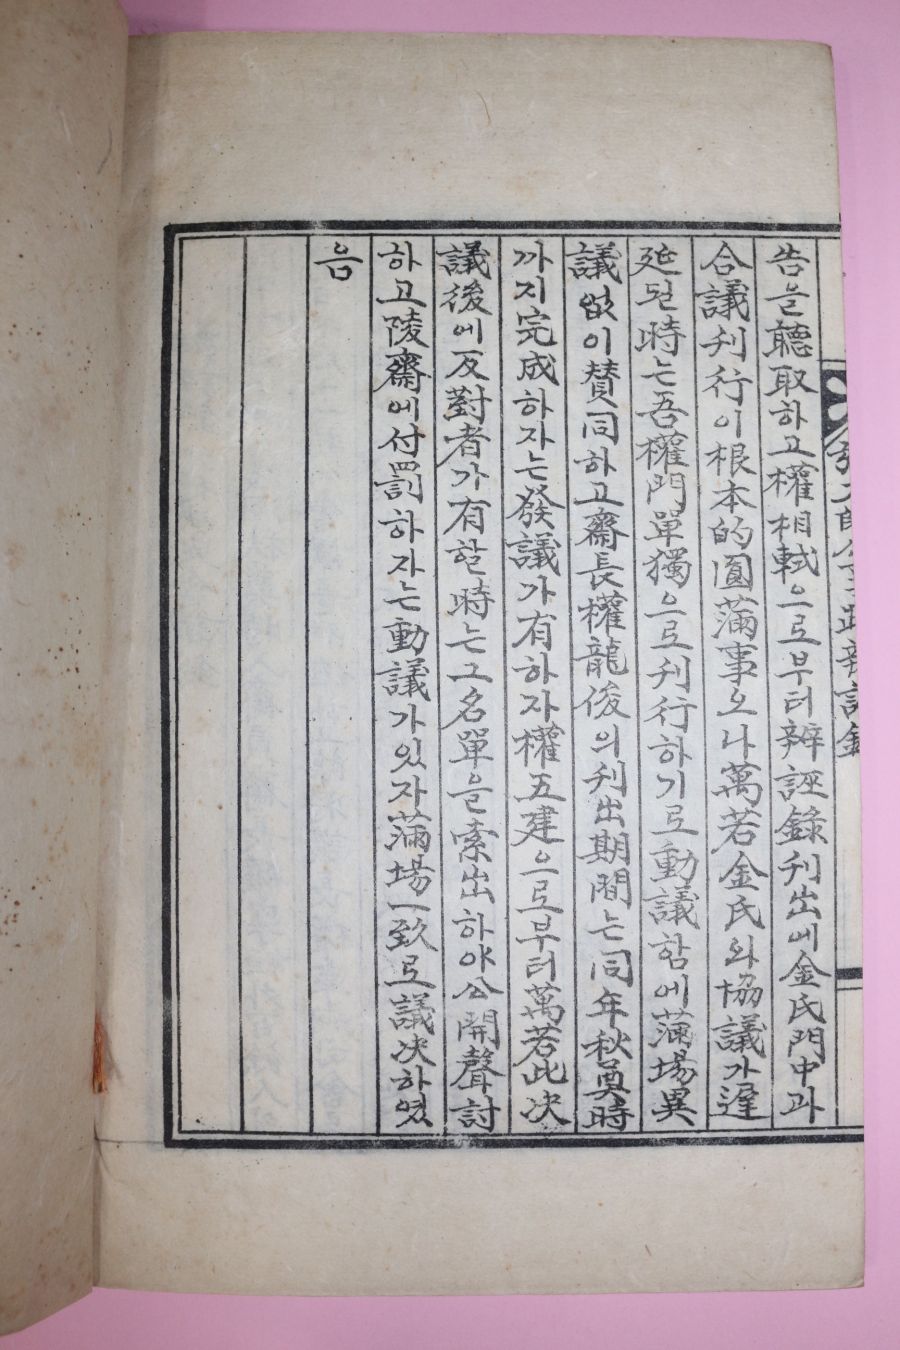 告을聽取하고權相軾으로부터辨誣錄刋出에金氏門中과
合議刋行이根本的圓滿事오나萬若金氏와協議가遲
延된時는吾權門單獨으로刋行하기로動議함에滿場異
議없이賛同하고齋長權龍俊의刋出期間는同年秋奠時
까지完成하자는發議가有하자權五建으로부터萬若此决
議後에反對者가有할時는그名單을索出하야公開聲討
하고陵齋에付罰하자는動議가있자滿場一致로議决하였
음